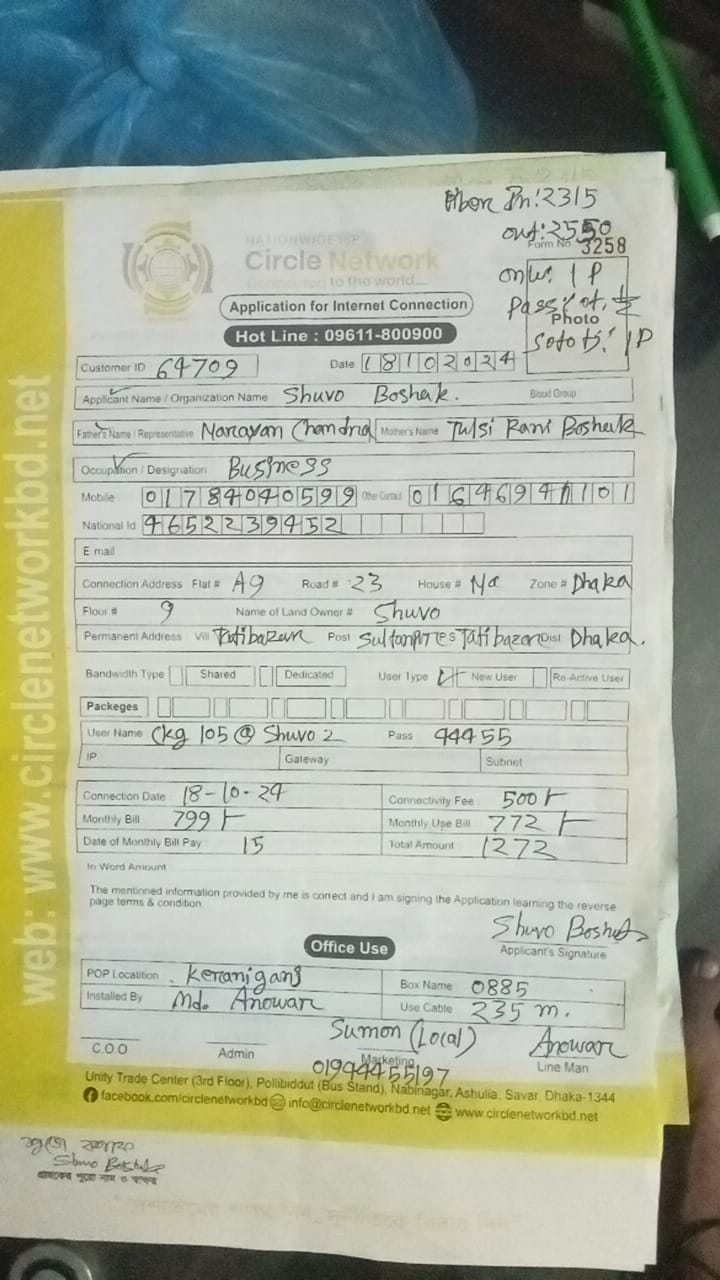 In: 2315
out: 2550
Form No 3258
NATIONWIDE ISP
Circle Network
Connected to the world....
Photo
Application for Internet Connection
Hot Line : 09611-800900
Customer ID 64709 Date 18102024
Applicant Name / Organization Name Shuvo Boshak. Blood Group
Father's Name / Representative Narayan Chandra Mother's Name Tulsi Rani Boshak
Occupation / Designation Business
Mobile 01784040599 Other Contact 01646941101
National Id 4652239452
E mail
Connection Address Flat # A9 Road # 23 House # Na Zone # Dhaka
Floor # 9 Name of Land Owner # Shuvo
Permanent Address Vill Tatibazar Post Tatibazar Dist Dhaka.
Bandwidth Type Shared Dedicated User Type New User Re-Active User
Packeges
User Name Ckg 105 @ Shuvo 2 Pass 44455
IP Gateway Subnet
Connection Date 18-10-24 Connectivity Fee 500
Monthly Bill 799 Monthly Use Bill 772
Date of Monthly Bill Pay 15 Total Amount 1272
In Word Amount
The mentioned information provided by me is correct and I am signing the Application learning the reverse
page terms & condition.
Shuvo Boshak
Applicant's Signature
Office Use
POP Locatition Keraniganj Box Name 0885
Installed By Md. Anowar Use Cable 235 m.
Sumon (Local) Anowar
C.O.O Admin Marketing Line Man
01944455197
Unity Trade Center (3rd Floor), Pollibiddut (Bus Stand), Nabinagar, Ashulia, Savar, Dhaka-1344
facebook.com/circlenetworkbd info@circlenetworkbd.net www.circlenetworkbd.net
web: www.circlenetworkbd.net
Shuvo Boshak
গ্রাহকের পুরো নাম ও স্বাক্ষর